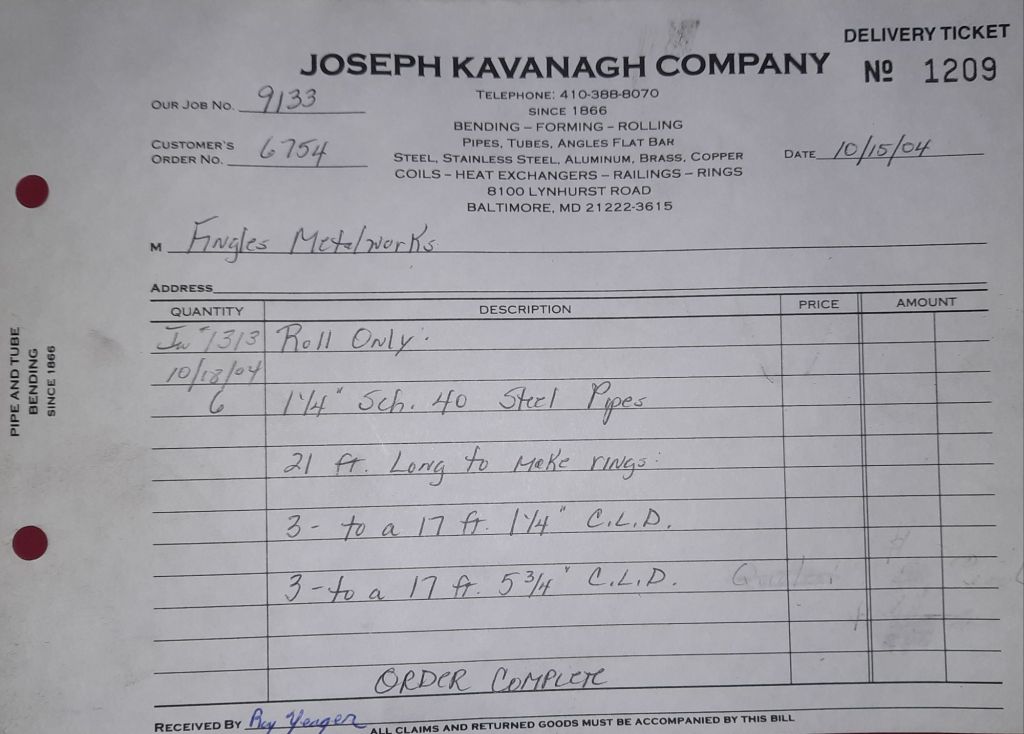 DELIVERY TICKET
JOSEPH KAVANAGH COMPANY
Nº 1209
TELEPHONE: 410-388-8070
SINCE 1866
BENDING – FORMING – ROLLING
PIPES, TUBES, ANGLES FLAT BAR
STEEL, STAINLESS STEEL, ALUMINUM, BRASS, COPPER
COILS – HEAT EXCHANGERS – RAILINGS – RINGS
8100 LYNHURST ROAD
BALTIMORE, MD 21222-3615
OUR JOB NO. 9133
CUSTOMER'S
ORDER NO. 6754
DATE 10/15/04
M Fingles Metalworks
ADDRESS
QUANTITY DESCRIPTION PRICE AMOUNT
#1313 Roll Only:
10/18/04
6 1¼" Sch. 40 Steel Pipes
21 ft. Long to make rings:
3- to a 17 ft. 1¼" C.L.D.
3- to a 17 ft. 5 ¾" C.L.D.
ORDER COMPLETE
RECEIVED BY Ray Yeager ALL CLAIMS AND RETURNED GOODS MUST BE ACCOMPANIED BY THIS BILL
PIPE AND TUBE
BENDING
SINCE 1866